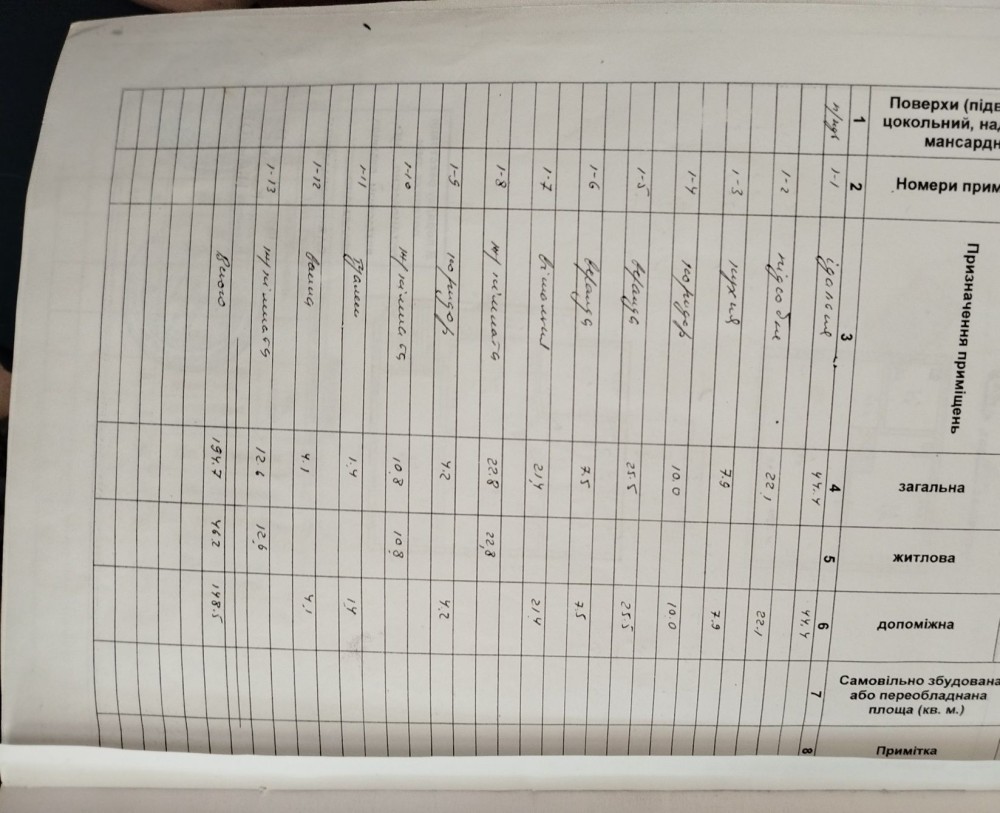 Поверхи (підв
цокольний, на
мансардн
Номери прим
Призначення приміщень
загальна
житлова
допоміжна
Самовільно збудована
або переобладнана
площа (кв. м.)
Примітка
1 2 3 4 5 6 7 8
1-1 їдальня 44.4 44.4
1-2 підсобне 22.1 22.1
1-3 кухня 7.9 7.9
1-4 коридор 10.0 10.0
1-5 веранда 25.5 25.5
1-6 веранда 7.5 7.5
1-7 вітальня 21,4 21.4
1-8 ж/кімната 22.8 22,8
1-9 коридор 4.2 4.2
1-10 ж/кімната 10,8 10,8
1-11 туалет 1.4 1.4
1-12 ванна 4.1 4.1
1-13 ж/кімната 12.6 12,6
Всього 194.7 46.2 148.5